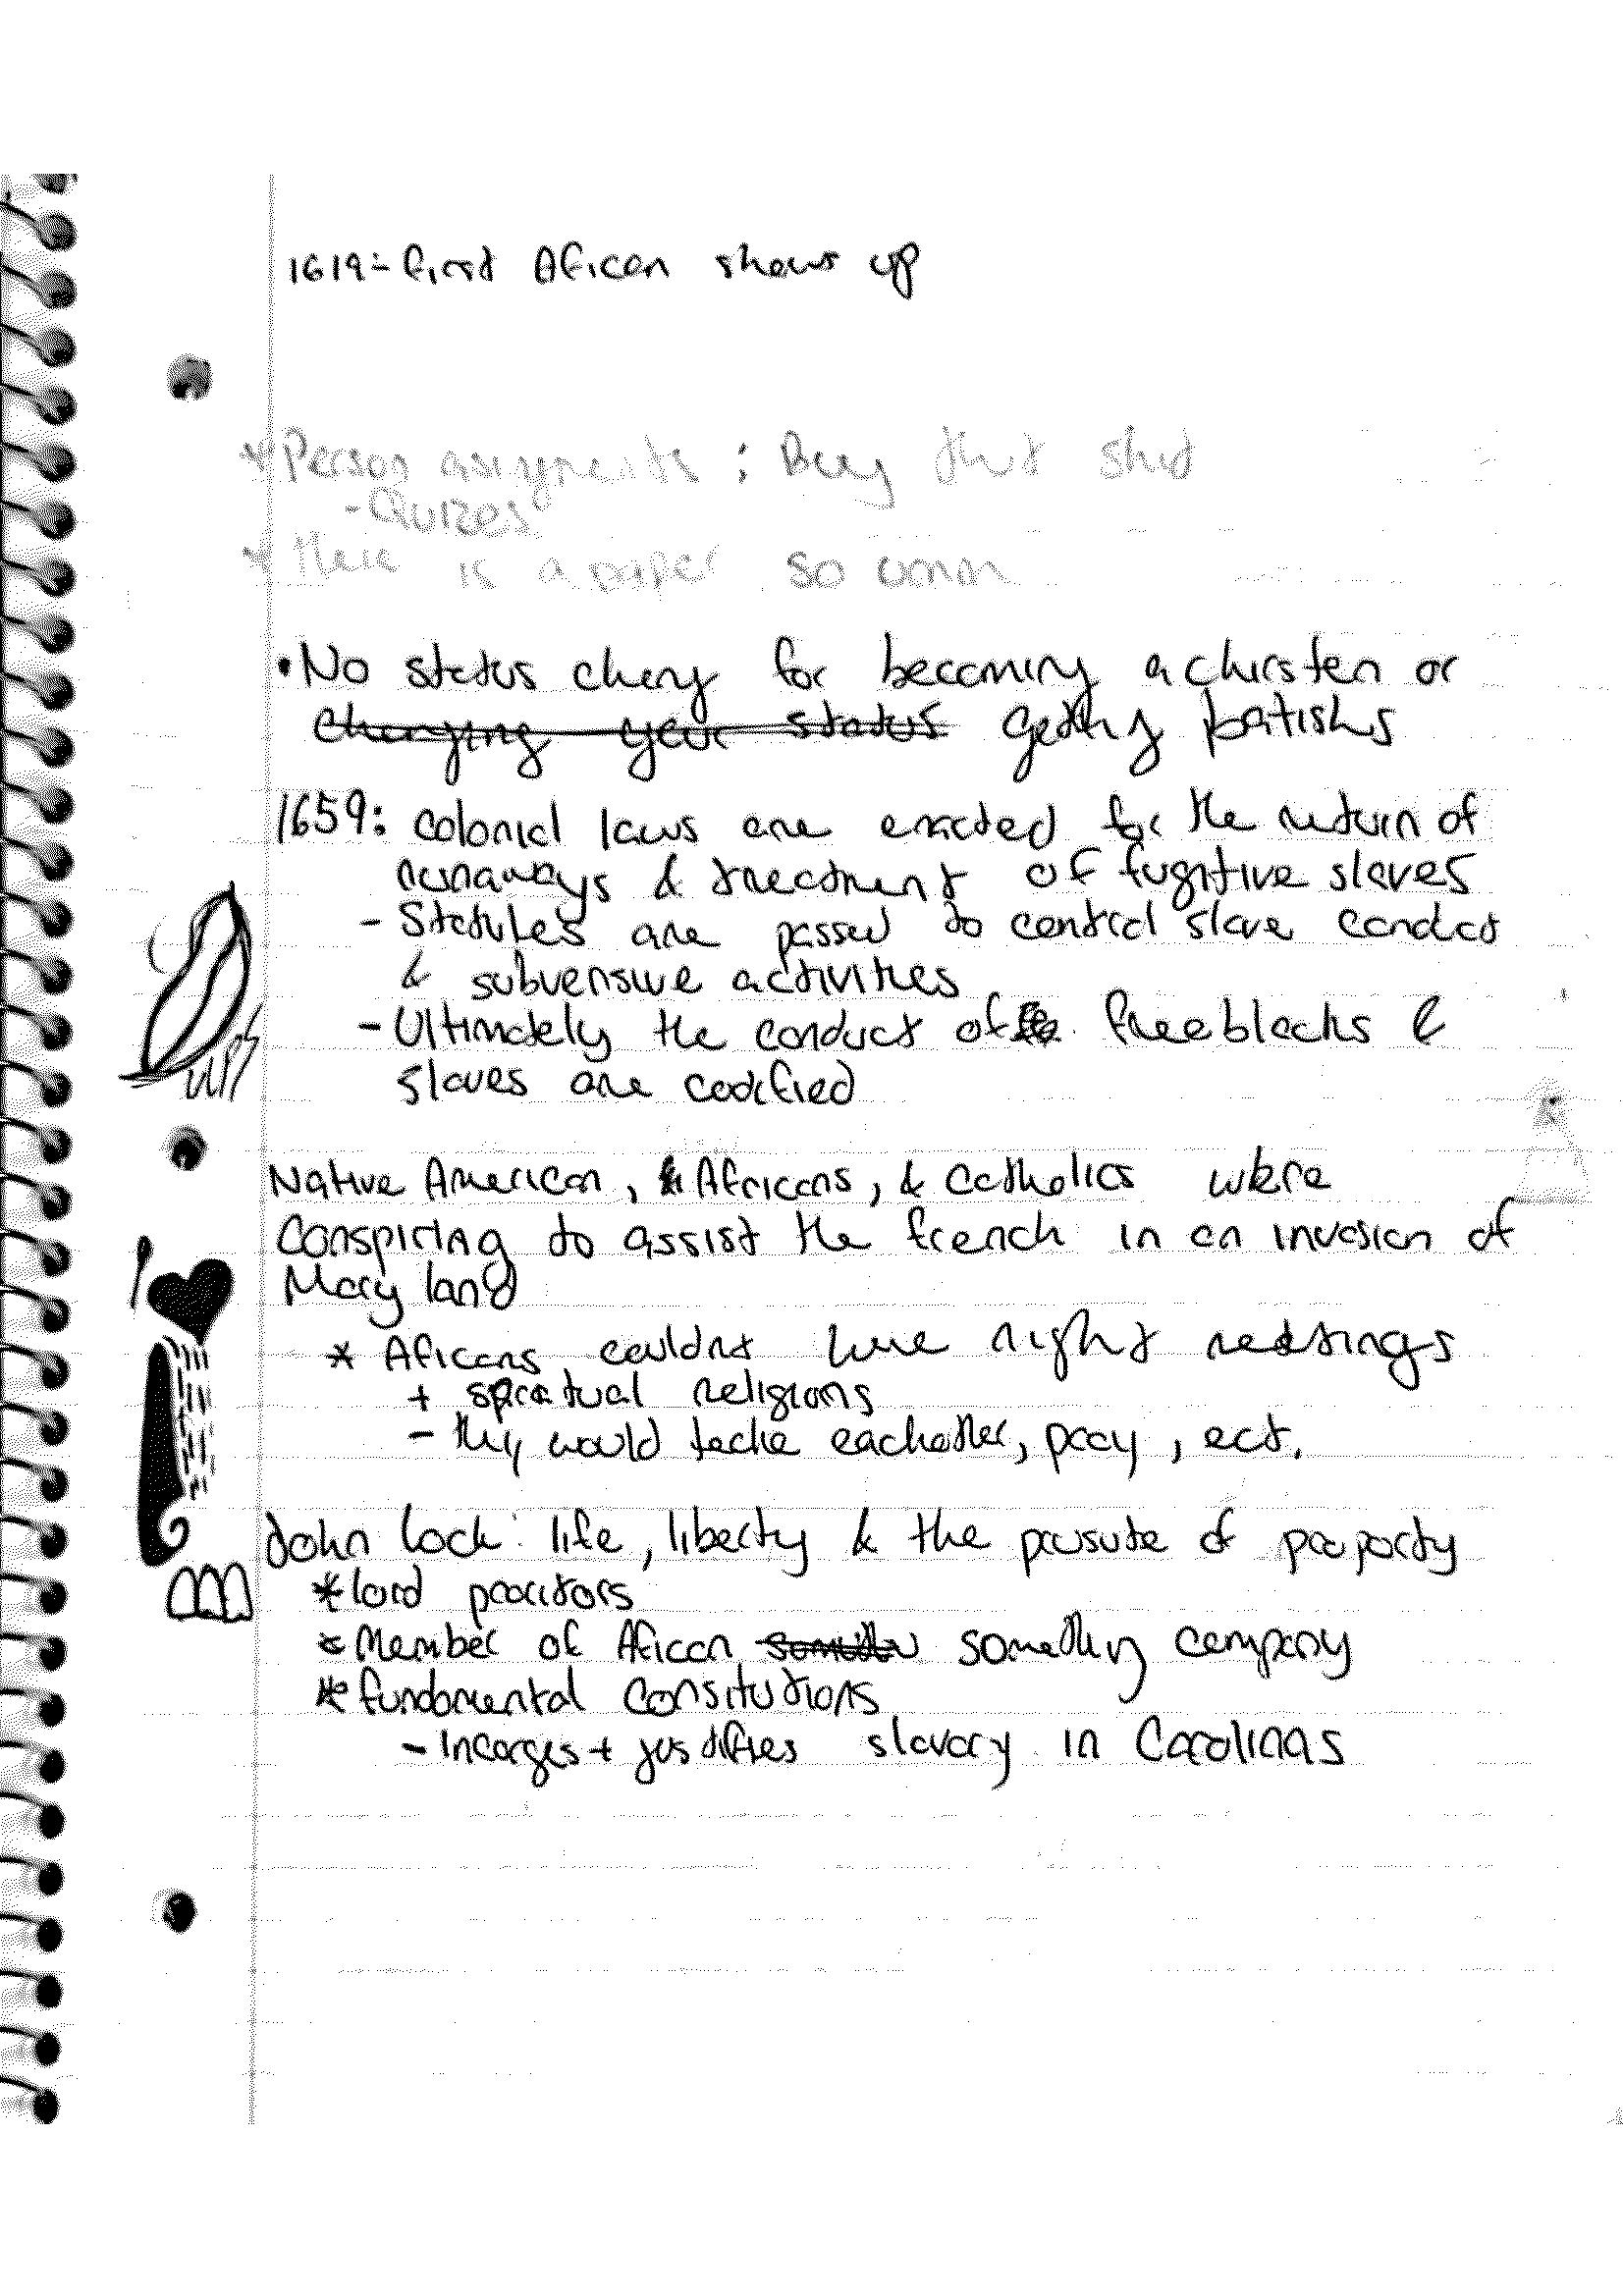 1619:- first African shows up
*Person assignments : Buy that shit
-Quizes
*there is a paper so
•No status chang for becoming a chirsten or
changing your status getting batishs
1659: colonial laws are enacted for the return of
runaways & treatment of fugitive slaves
- Statutes are passed to control slave conduct
& subversive activities
- Ultimately the conduct of free blacks &
slaves are codified
Native American, & Africans, & Catholics were
conspiring to assist the french in an invasion of
Mary land
* Africans couldnt have night
+ spiratual religions
- they would teche eachother, pray, ect.
John lock: life, liberty & the prusute of proporty
*lord pracitors
*Member of African something company
*fundamental consitutions
- Incorges + justifies slavary in Carolinas